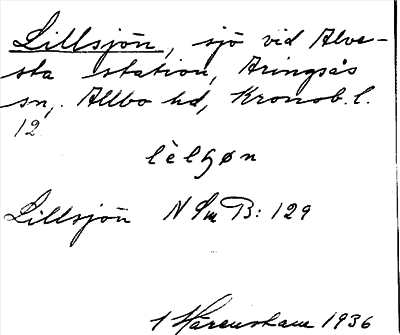 Lillsjön, sjö vid Alve-
sta station, Aringsås
sn, Allbo hd, Kronob. l.
12
lèlʃøn
Lillsjön N Sm B: 129
1936